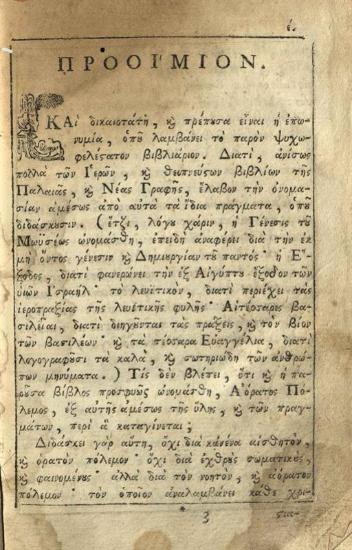 έ.
ΠΡΟΟΙ'ΜΙΟΝ.
ΚΑὶ δικαιοτάτη, ϗ πρέπουσα εἶναι ἡ ἐπω-
νυμία, ὁποῦ λαμβάνει τὸ παρὸν ψυχω-
φελέστατον βιβλιάριον. Διατὶ, ἀνίσως
πολλὰ τῶν Ἱερῶν, ϗ θεοπνεύστων βιβλίων τῆς
Παλαιᾶς, ϗ Νέας Γραφῆς, ἔλαβον τὴν ὀνομα-
σίαν ἀμέσως ἀπὸ αὐτὰ τὰ ἴδια πράγματα, ὁποῦ
διδάσκουσιν. (ἔτζι, λόγου χάριν, ἡ Γένεσις τοῦ
Μωυσέως ὠνομάσθη, ἐπειδὴ ἀναφέρει διὰ τὴν ἐκ
μὴ ὄντος γένεσιν ϗ Δημιουργίαν τοῦ παντός· ἡ Ἔ-
ξοδος, διατὶ φανερώνει τὴν ἐξ Αἰγύπτου ἔξοδον τῶν
υἱῶν Ἰσραήλ· τὸ λευϊτικὸν, διατὶ περιέχει τὰς
ἱεροπραξίας τῆς λευϊτικῆς φυλῆς· Αἱ τέσσαρες βα-
σιλεῖαι, διατὶ διηγοῦνται τὰς πράξεις, ϗ τὸν βίον
τῶν βασιλέων· ϗ τὰ τέσσαρα Εὐαγγέλια, διατὶ
λογογραφοῦσι τὰ καλὰ, ϗ σωτηριώδη τῶν ἀνθρώ-
πων μηνύματα.) Τίς δὲν βλέπει, ὅτι ϗ ἡ πα-
ροῦσα βίβλος προσφυῶς ὠνομάσθη, Ἀόρατος Πό-
λεμος, ἐξ αὐτῆς ἀμέσως τῆς ὕλης, ϗ τῶν πραγ-
μάτων, περὶ ἃ καταγίνεται;
Διδάσκει γὰρ αὕτη, ὄχι διὰ κᾀνένα αἰσθητὸν,
ϗ ὁρατὸν πόλεμον· ὄχι διὰ ἐχθροὺς σωματικοὺς,
ϗ φαινομένους· ἀλλὰ διὰ τὸν νοητὸν, ϗ ἀόρατον
πόλεμον· τὸν ὁποῖον ἀναλαμβάνει κάθε χρι-
* 3 στια-